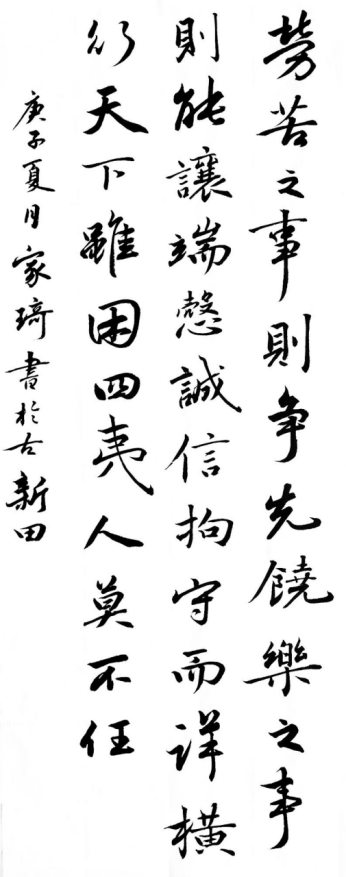 勞苦之事則争先饒樂之事
則能讓端慤誠信拘守而详橫
行天下雖困四夷人莫不任
庚子夏月家琦書於古新田